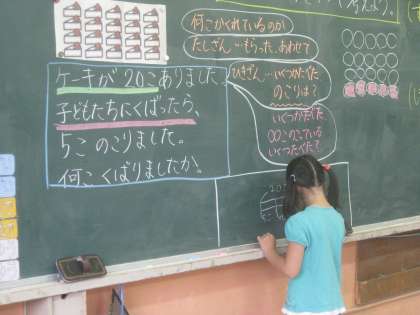 て考えよう。
何こかくれているのか
たしざん…もらった、あわせて
ケーキが20こありました。
子どもたちにくばったら、
5このこりました。
何こくばりましたか。
ひきざん…いくつかたべた
のこりは？
いくつかたべた、
〇〇このこっている
いくつたべた？
20こ